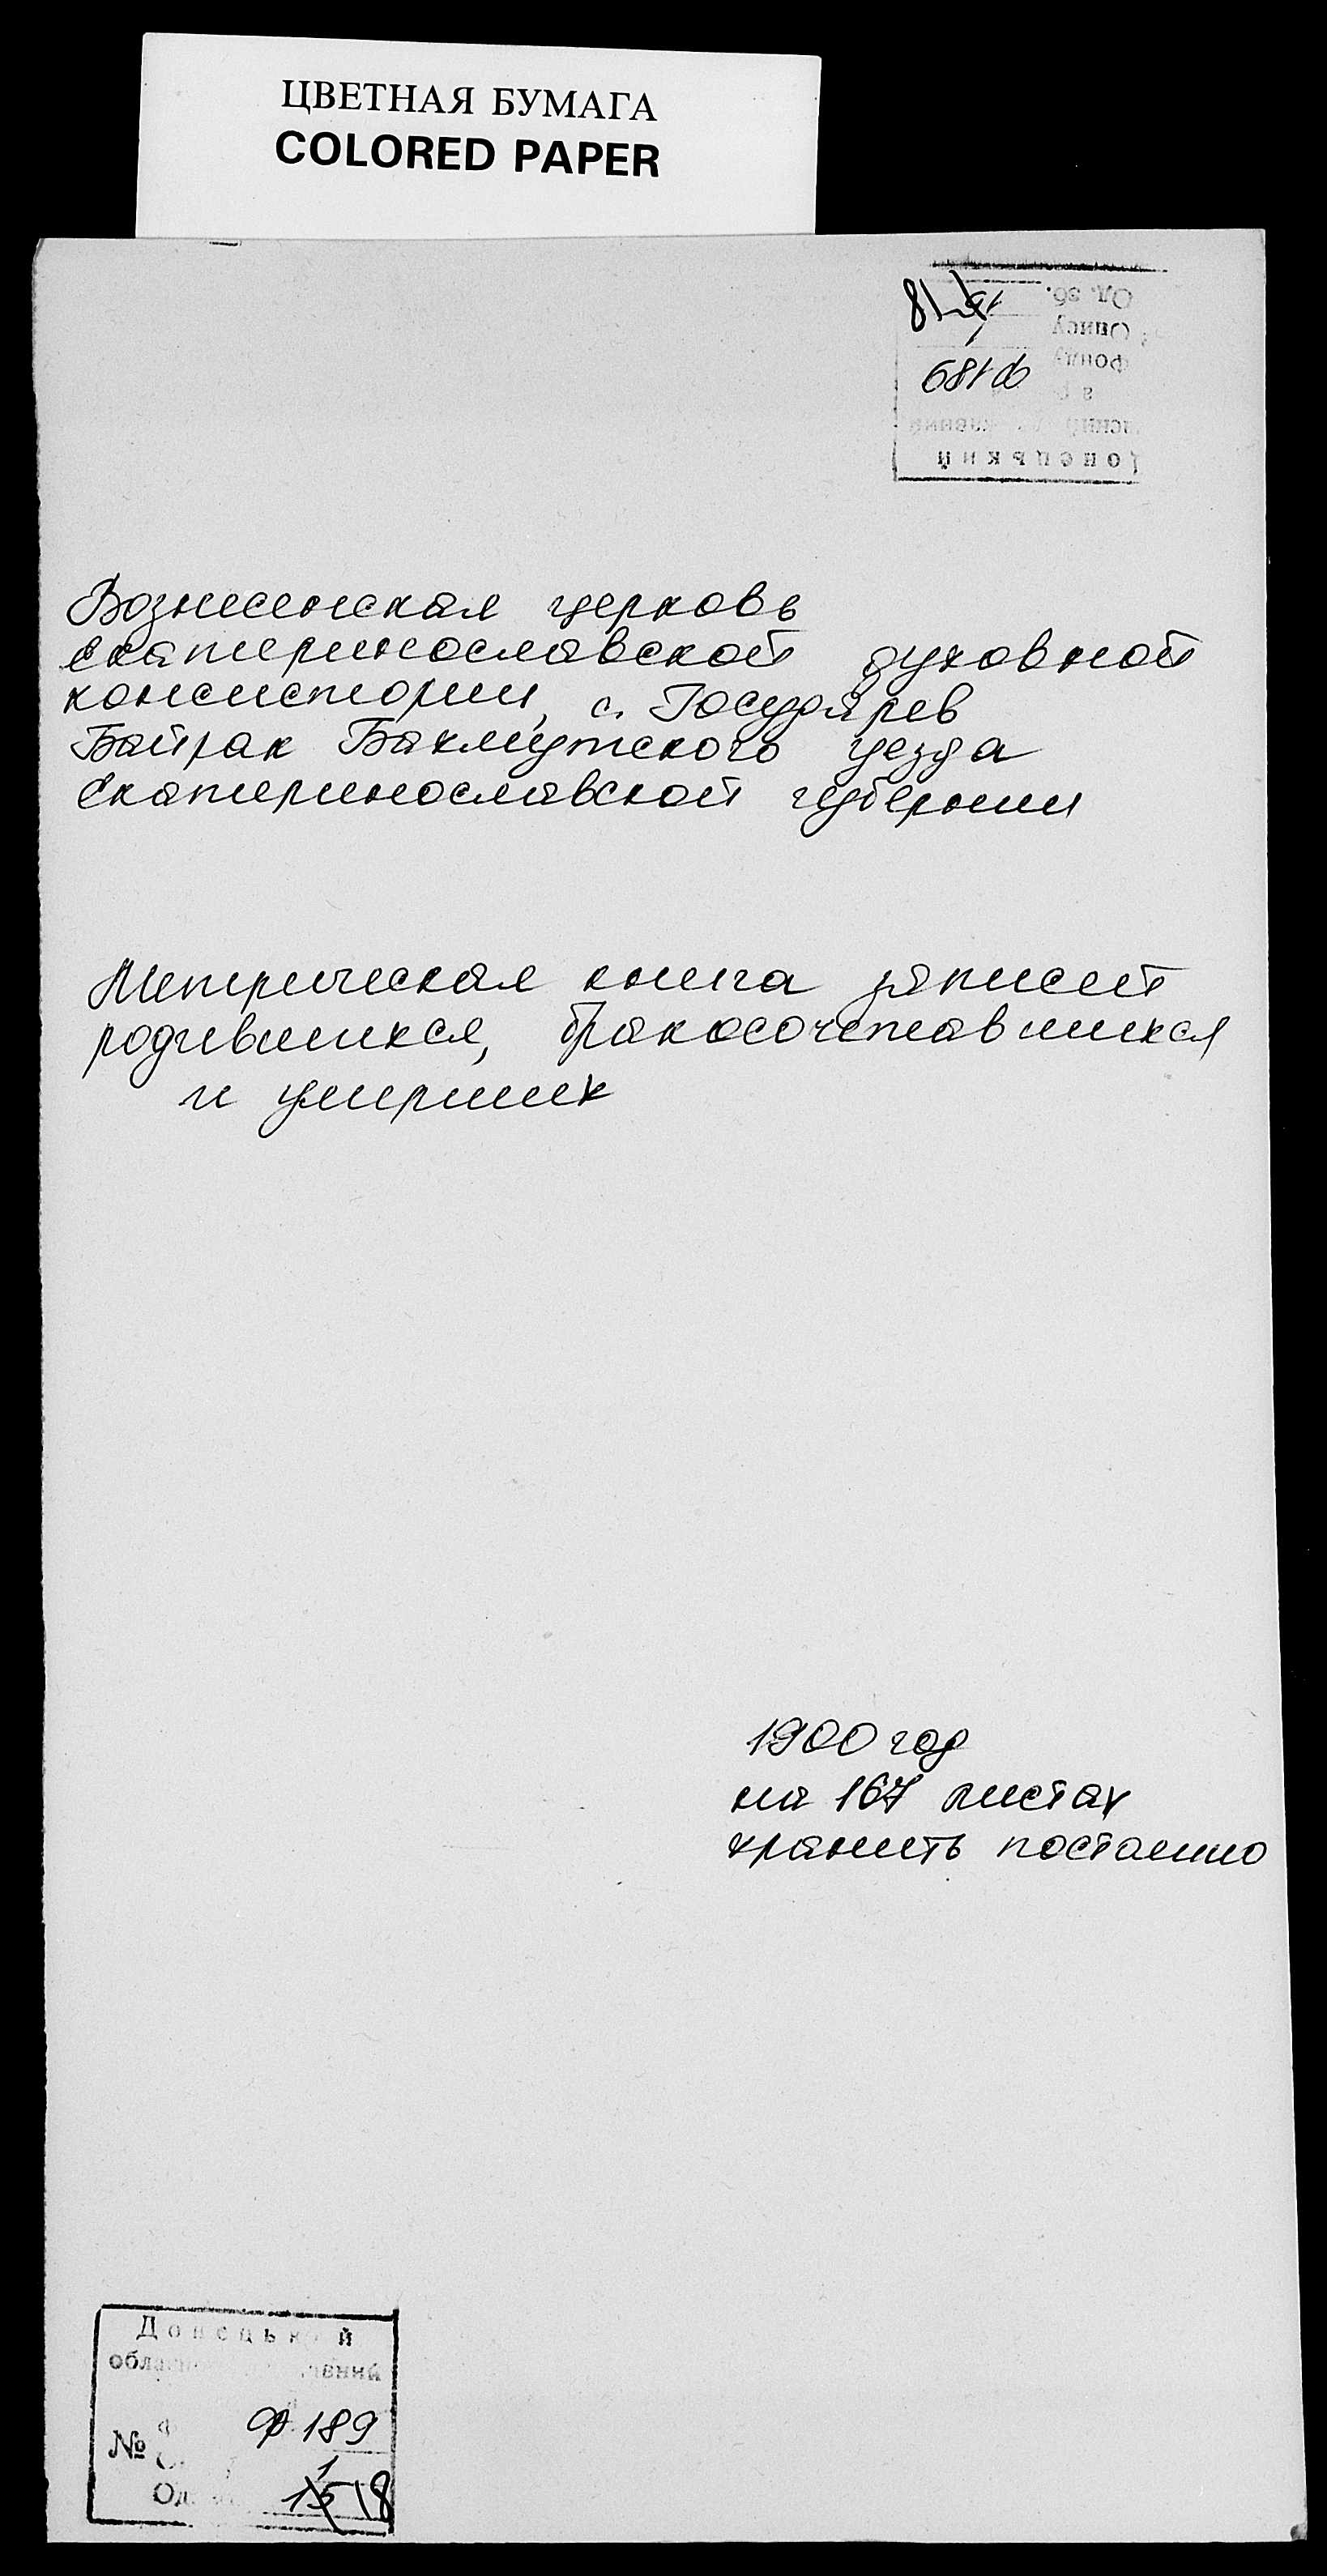 ЦВЕТНАЯ БУМАГА
COLORED PAPER
Од. зб. 18
Опису 1
Фонду Ф 189
Донецький
Вознесенская церковь
екатеринославской духовной
консистории, с. Государев
Байрак Бахмутского уезда
екатеринославской губернии
Метрическая книга записей
родившихся, бракосочетавшихся
и умерших
1900 год
на 167 листах
хранить постоянно
Донецький
№ Ф 189
1
Од. 15 18